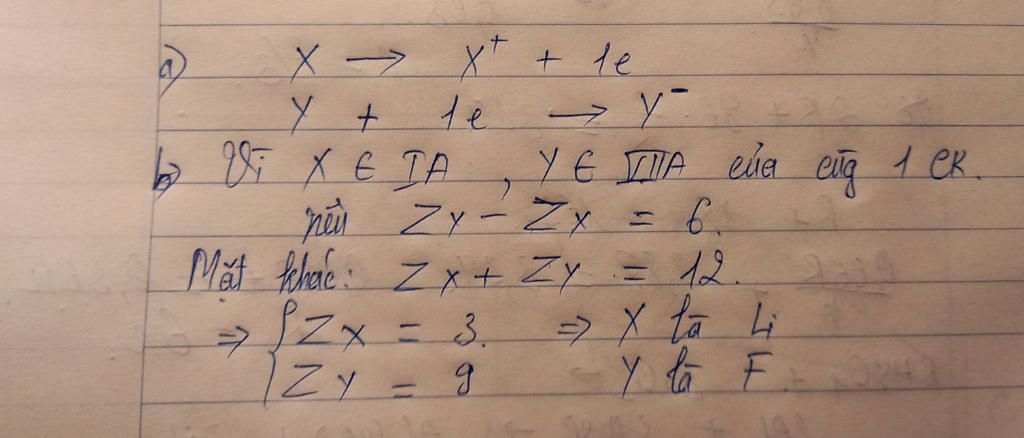 a) X → X⁺ + 1e
Y + 1e → Y⁻
b) Vì X ∈ IA, Y ∈ VIIA của cùg 1 CK.
nên Zʏ - Zx = 6.
Mặt khác: Zx + Zʏ = 12.
⇒ { Zx = 3. ⇒ X là Li
Zʏ = 9 Y là F.